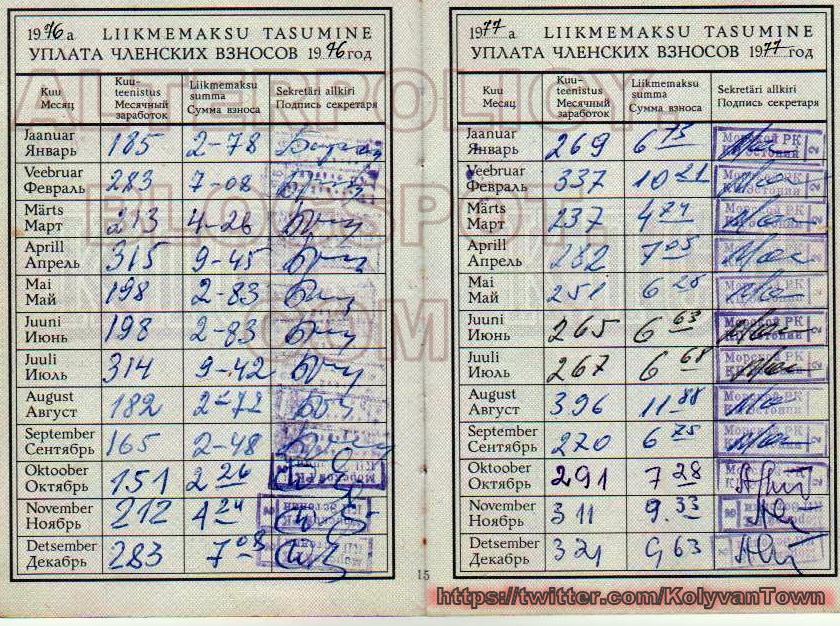 1976 a LIIKMEMAKSU TASUMINE
УПЛАТА ЧЛЕНСКИХ ВЗНОСОВ 1976 год
Kuu Месяц Kuuteenistus Месячный заработок Liikmemaksu summa Сумма взноса Sekretäri allkiri Подпись секретаря
Jaanuar Январь 185 2-78
Veebruar Февраль 283 7-08
Märts Март 213 4-26
Aprill Апрель 315 9-45
Mai Май 198 2-83
Juuni Июнь 198 2-83
Juuli Июль 314 9-42
August Август 182 2-72
September Сентябрь 165 2-48
Oktoober Октябрь 151 2 26
November Ноябрь 212 4 24
Detsember Декабрь 283 7 08
15
1977 a LIIKMEMAKSU TASUMINE
УПЛАТА ЧЛЕНСКИХ ВЗНОСОВ 1977 год
Kuu Месяц Kuuteenistus Месячный заработок Liikmemaksu summa Сумма взноса Sekretäri allkiri Подпись секретаря
Jaanuar Январь 269 6 73 Морской РК КП Эстонии 2
Veebruar Февраль 337 10 21 Морской РК КП Эстонии 2
Märts Март 237 4 74
Aprill Апрель 282 7 05
Mai Май 251 6 28
Juuni Июнь 265 6 63
Juuli Июль 267 6 68 Морской РК
August Август 396 11 88
September Сентябрь 270 6 75
Oktoober Октябрь 291 7 28
November Ноябрь 311 9.33
Detsember Декабрь 321 9 63
ALTERPOLICY.
BLOGSPOT.
COM
https://twitter.com/KolyvanTown